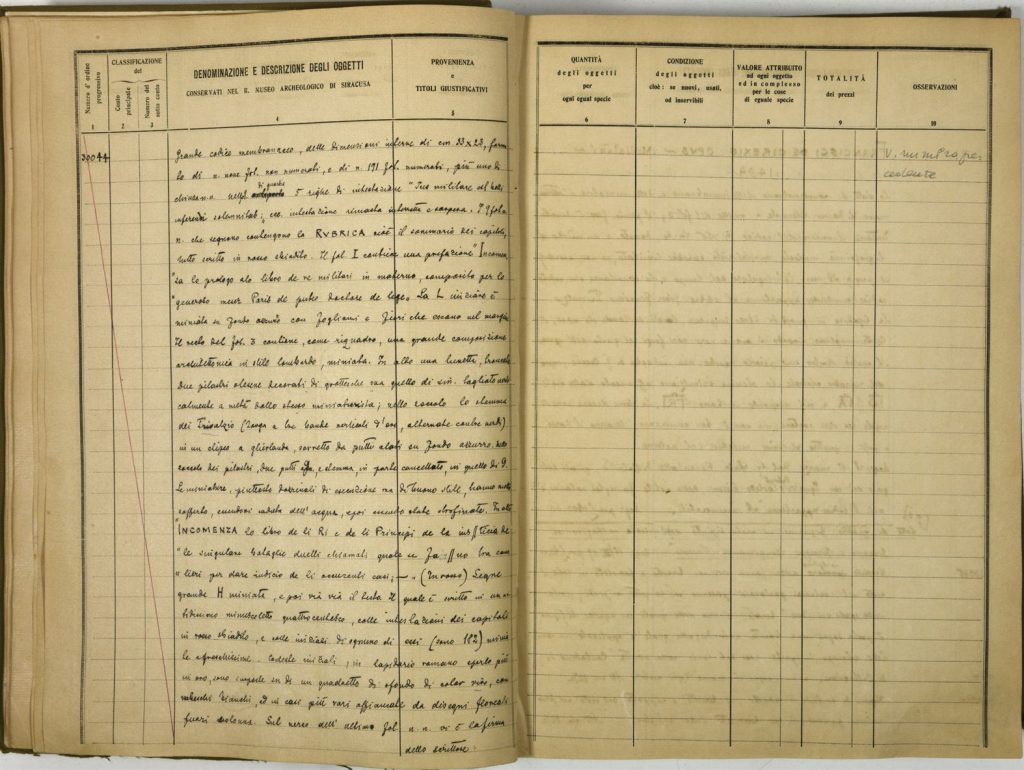 Numero d'ordine progressivo
CLASSIFICAZIONE del
Conto principale
Numero del sotto conto
DENOMINAZIONE E DESCRIZIONE DEGLI OGGETTI
CONSERVATI NEL R. MUSEO ARCHEOLOGICO DI SIRACUSA
PROVENIENZA
e
TITOLI GIUSTIFICATIVI
1 2 3 4 5
30044
Grande codice membranaceo, delle dimensioni interne di cm. 33 x 23, forma
to di n. nove fol. non numerati, e di n. 191 fol. numerati, più uno di
chiusura nell' di guardia 5 righe di intestazione "Jus militare
solemnitab; ecc. intestazione rimasta interrotta e sospesa. I 9 fol.
n. che seguono contengono la RVBRICA cioè il sommario dei capitoli,
tutto scritto in rosso sbiadito. Il fol. I contiene una prefazione "Incomen
"za lo prologo alo libro de re militari in moderno, composito per lo
"generoso meser Paris de puteo doctore de lege. La L iniziale è
miniata su fondo azzurro con fogliami e fiori che escono nel margine
Il recto del fol. 3 contiene, come riquadro, una grande composizione
architettonica in stile lombardo, miniata. In alto una lunetta,
due pilastri olesene decorati di grottesche ma quello di sin. tagliato verti
calmente a metà dallo stesso miniaturista; nello zoccolo lo stemma
dei Trivulzio (Targa a tre bande verticali d'oro, alternate con tre verdi)
in un clipeo a ghirlanda, sorretto da putti alati su fondo azzurro. Nello
zoccolo dei pilastri, due putti e stemma, in parte cancellato, in quello di D.
Le miniature piuttosto dozzinali di esecuzione ma di buono stile, hanno molto
sofferto, essendovi caduta dell'acqua, e poi essendo state strofinate. In alto
"INCOMENZA lo libro de li Ri e de li Principi de la iusticia de
"le singulare bataglie duelli chiamati quale se fa no tra cava
"lieri per dare iudicio de li occurenti casi; — " (In rosso) Segue
grande H miniata, e poi via via il testo. Il quale è scritto in un
nitidissimo minuscoletto quattrocentesco, colle intestazioni dei capitoli
in rosso sbiadito, e colle iniziali di ognuno di essi (sono 182) minia
te freschissime. Codeste iniziali, in lapidario romano
in oro, sono inserite su di un quadretto di sfondo di color vario, con
rabeschi bianchi, ed in casi più rari affiancate da disegni floreali
fuori colonna. Sul verso dell'ultimo fol. n. n. vi è la firma
dello scrittore.
QUANTITÀ
degli oggetti
per
ogni egual specie
CONDIZIONE
degli oggetti
cioè: se nuovi, usati,
od inservibili
VALORE ATTRIBUITO
ad ogni oggetto
ed in complesso
per le cose
di eguale specie
TOTALITÀ
dei prezzi
OSSERVAZIONI
6 7 8 9 10
V. numero pre
cedente